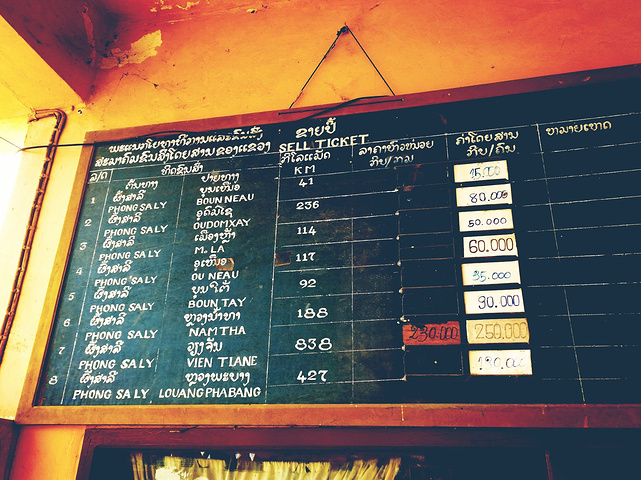 ຂາຍປີ້
SELL TICKET
ກິໂລແມັດ
KM
ຄ່າໂດຍສານ
ກີບ/ຄົນ
ໝາຍເຫດ
ລ/ດ
ຕົ້ນທາງ ປາຍທາງ
1 ຜົ້ງສາລີ ບຸນເໜືອ 41
PHONGSALY BOUN NEAU
2 ຜົ້ງສາລີ ອຸດົມໄຊ 236 80.000
PHONG SALY OUDOMXAY
3 ຜົ້ງສາລີ ເມືອງຫຼ້າ 114 50.000
PHONG SALY M. LA
4 ຜົ້ງສາລີ ອູເໜືອ 117 60.000
PHONG SALY OU NEAU
5 ຜົ້ງສາລີ ບຸນໃຕ້ 92 35.000
PHONG SALY BOUN TAY
6 ຜົ້ງສາລີ ຫຼວງນ້ຳທາ 188 90.000
PHONG SALY NAMTHA
7 ຜົ້ງສາລີ ວຽງຈັນ 838 230.000 250.000
PHONG SALY VIEN TIANE
8 ຜົ້ງສາລີ ຫຼວງພະບາງ 427
PHONG SALY LOUANGPHABANG